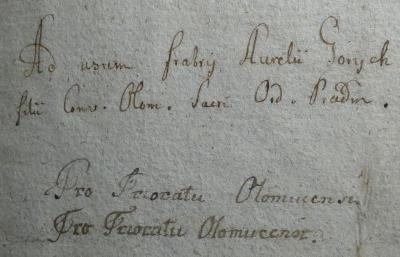 Ad usum fratris Aurelii Gorych
filii Conv. Olom. Sacri Ord. Praed.
Pro Prioratu Olomucensi
Pro Prioratu Olomucensi.